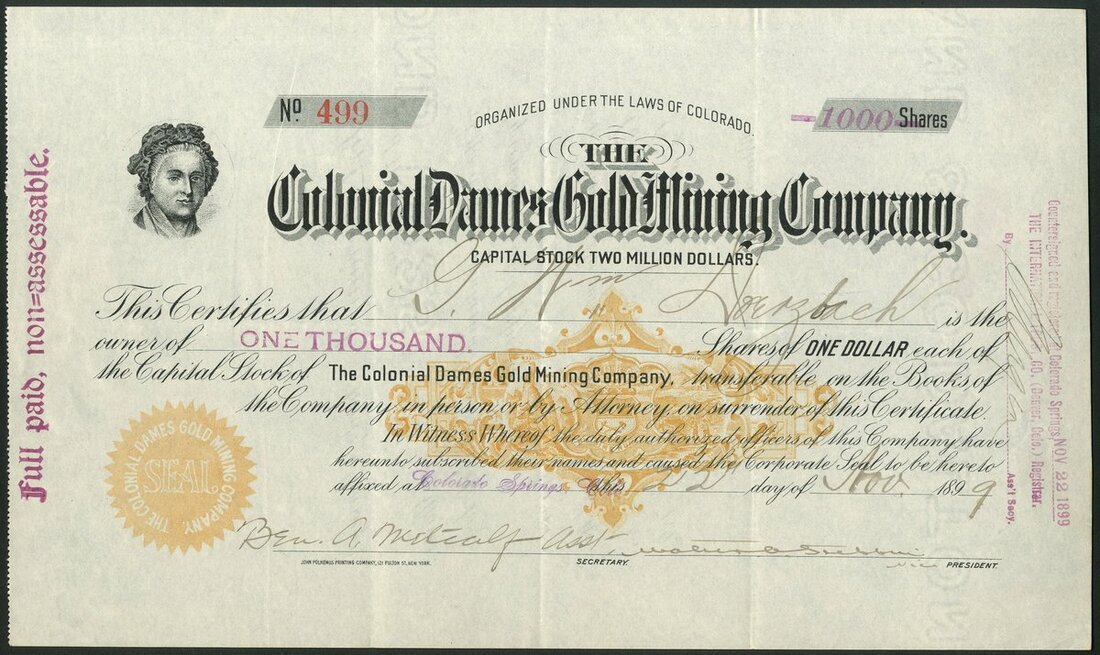 Nº 499
ORGANIZED UNDER THE LAWS OF COLORADO.
1000 Shares
THE
Colonial Dames Gold Mining Company.
CAPITAL STOCK TWO MILLION DOLLARS.
This Certifies that G. Wm is the
owner of ONE THOUSAND. Shares of ONE DOLLAR each of
the Capital Stock of The Colonial Dames Gold Mining Company, transferable on the Books of
the Company in person or by Attorney on surrender of this Certificate.
In Witness Whereof the duly authorized officers of this Company have
hereunto subscribed their names and caused the Corporate Seal to be hereto
affixed at Colorado Springs this 22 day of Nov. 1899
Ben. A. Metcalf Asst.
SECRETARY.
Vice PRESIDENT.
JOHN POLHEMUS PRINTING COMPANY, 121 FULTON ST. NEW YORK.
Full paid, non=assessable.
THE COLONIAL DAMES GOLD MINING COMPANY.
SEAL
Countersigned and Colorado Springs, NOV 22 1899
THE CO, Denver, Colo., Registrar.
By Ass't Secy.